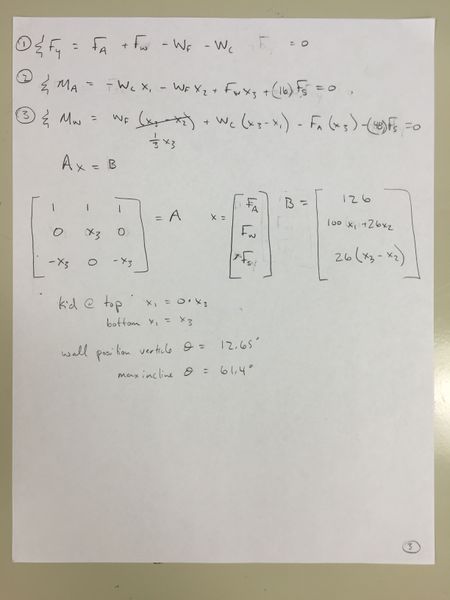 ① Σ Fy = FA + Fw - WF - WC = 0
② Σ MA = -WC x1 - WF x2 + Fw x3 + (16)Fs = 0
③ Σ Mw = WF (x3 - x2) + WC (x3 - x1) - FA (x3) - (48)Fs = 0
1/3 x3
Ax = B
[1 1 1; 0 x3 0; -x3 0 -x3] = A x = [FA; Fw; Fs] B = [126; 100 x1 + 26 x2; 26 (x3 - x2)]
kid @ top x1 = 0 · x3
bottom x1 = x3
wall position verticle θ = 12.65°
max incline θ = 61.4°
③